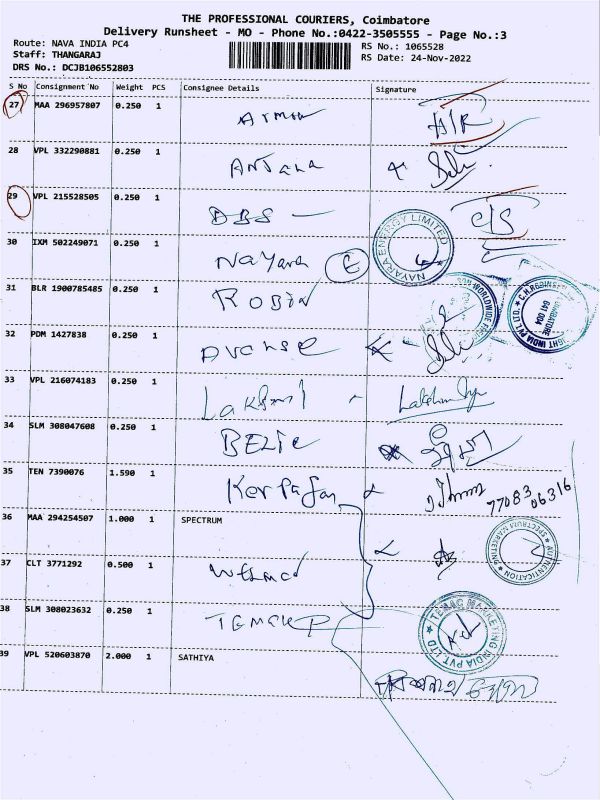 THE PROFESSIONAL COURIERS, Coimbatore
Delivery Runsheet - MO - Phone No.:0422-3505555 - Page No.:3
Route: NAVA INDIA PC4
RS No.: 1065528
Staff: THANGARAJ
RS Date: 24-Nov-2022
DRS No.: DCJB106552803
S No Consignment No Weight PCS Consignee Details Signature
27 MAA 296957807 0.250 1
28 VPL 332290881 0.250 1 ANJANA
29 VPL 215528505 0.250 1 DBS C/S
30 IXM 502249071 0.250 1 NAYARA E
NAYARA ENERGY LIMITED
31 BLR 1900785485 0.250 1 ROBIN
32 PDM 1427838 0.250 1 AVANSE
33 VPL 216074183 0.250 1 LAKSHMI
34 SLM 308047608 0.250 1
35 TEN 7390076 1.590 1 77083 06316
36 MAA 294254507 1.000 1 SPECTRUM
SPECTRUM MARKETING AUTHENTICATION
37 CLT 3771292 0.500 1
38 SLM 308023632 0.250 1
MARKETING INDIA PVT LTD
39 VPL 520603870 2.000 1 SATHIYA